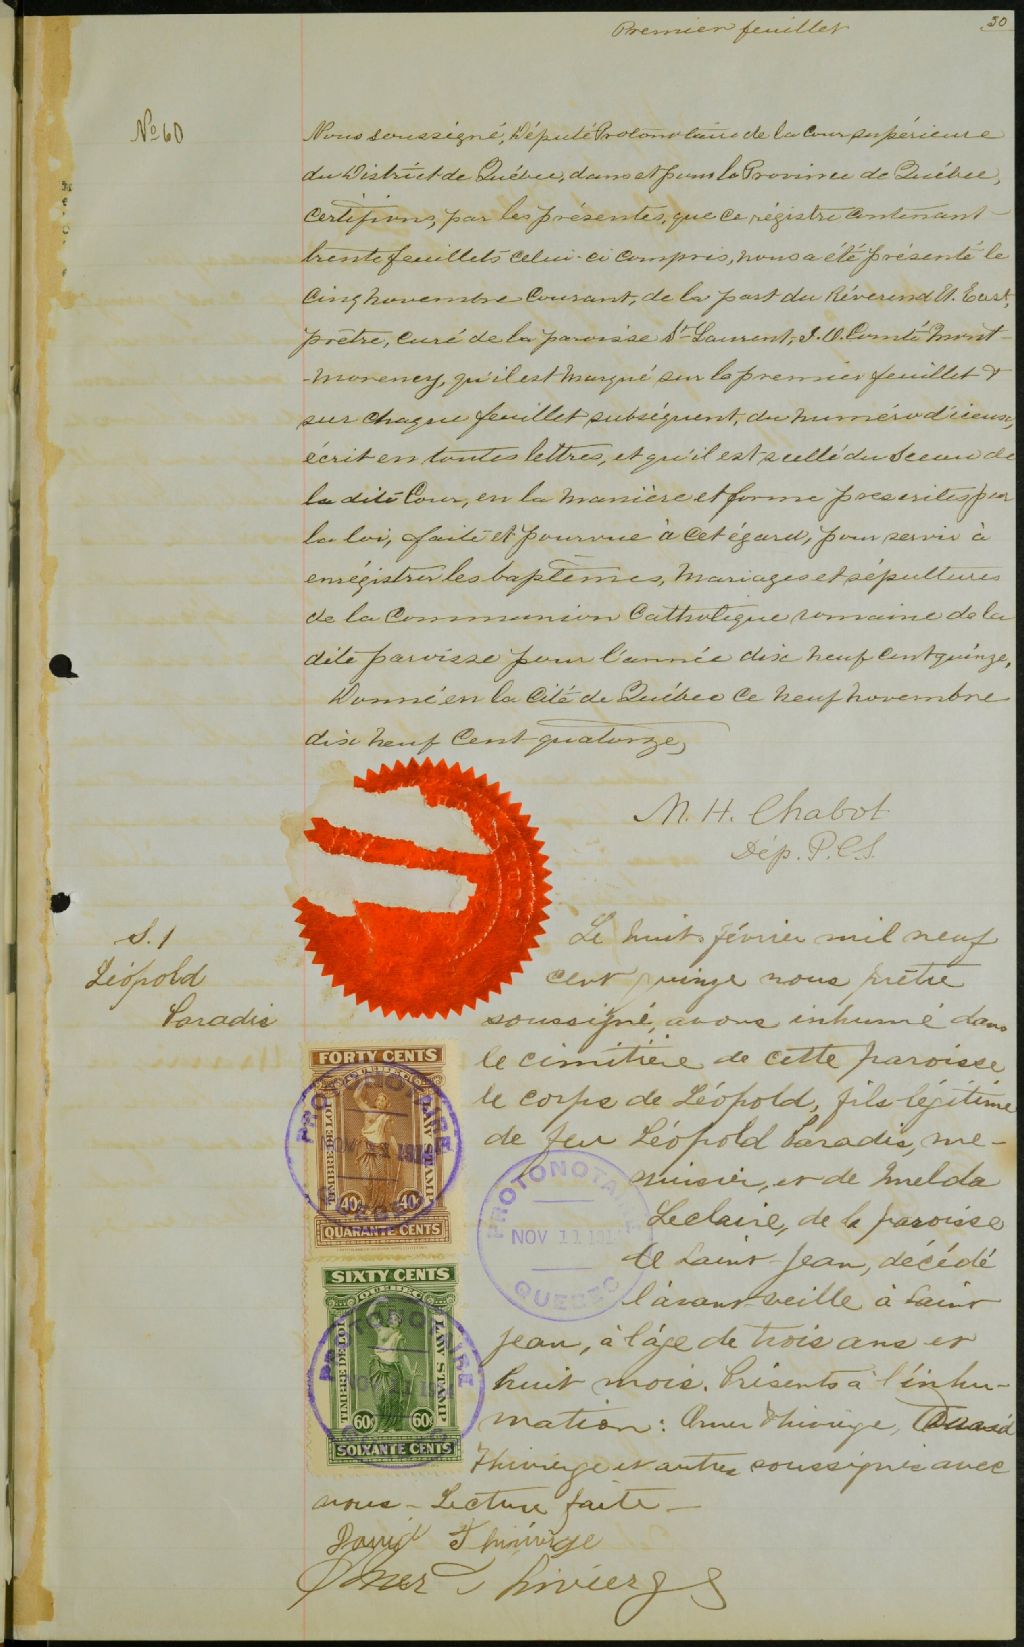 Premier feuillet
30
No 60
Nous soussigné, Député Protonotaire de la Cour supérieure
du District de Québec, dans et pour la Province de Québec,
Certifions, par les présentes, que ce régistre contenant
trente feuillets celui-ci compris, nous a été présenté le
cinq novembre courant, de la part du Révérend
prêtre, curé de la paroisse St Laurent, I. O. Comté Mont-
-morency, qu'il est marqué sur le premier feuillet &
sur chaque feuillet subséquent, du numéro d'iceux,
écrit en toutes lettres, et qu'il est scellé du Sceau de
la dite Cour, en la manière et forme prescrites par
la loi, faite et pourvue à cet égard, pour servir à
enrégistrer les baptêmes, mariages et sépultures
de la Communion Catholique romaine de la
dite paroisse pour l'année dix neuf cent quinze,
Donné en la Cité de Québec ce neuf novembre
dix neuf Cent quatorze,
M. H. Chabot
Dép. P.C.S.
S. 1
Léopold
Paradis
Le huit février mil neuf
cent quinze nous prêtre
soussigné, avons inhumé dans
le cimitière de cette paroisse
le corps de Léopold, fils légitime
de feu Léopold Paradis, me-
nuisier, et de Imelda
Leclaire, de la paroisse
de Saint Jean, décédé
l'avant veille à Saint
Jean, à l'âge de trois ans et
huit mois. Présents à l'inhu-
mation: Omer Thivierge,
Thivierge et autres soussignés avec
nous - Lecture faite -
David Thivierge
Omer Thivierge
FORTY CENTS
TIMBRE DE LOI
LAW STAMP
40c 40c
QUARANTE CENTS
PROTONOTAIRE
NOV 11 191
QUEBEC
SIXTY CENTS
QUEBEC
TIMBRE DE LOI
LAW STAMP
60c 60c
SOIXANTE CENTS
PROTONOTAIRE
NOV 11 1914